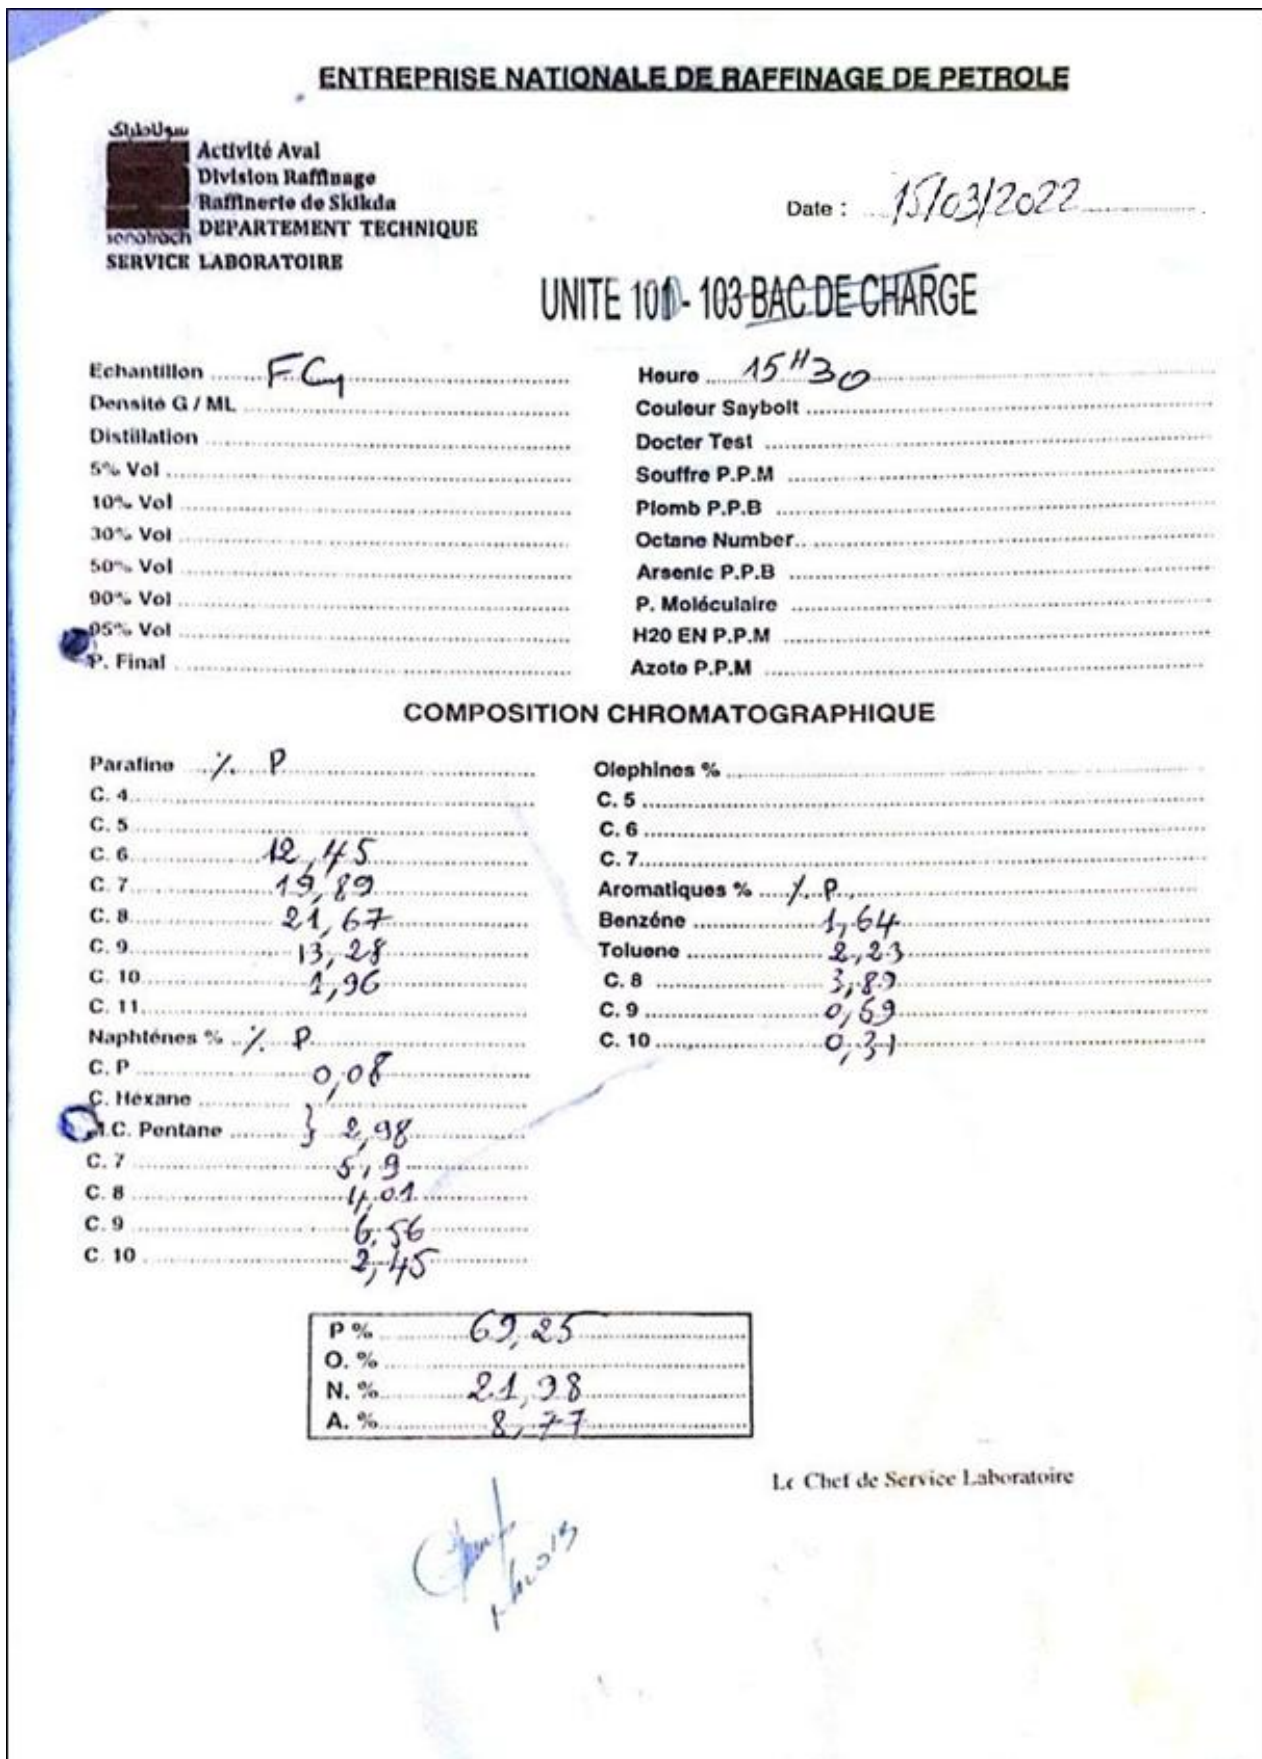 ENTREPRISE NATIONALE DE RAFFINAGE DE PETROLE
سوناطراك
Activité Aval
Division Raffinage
Raffinerie de Skikda
sonatrach DEPARTEMENT TECHNIQUE
SERVICE LABORATOIRE
Date : 15/03/2022
UNITE 101 - 103 BAC DE CHARGE
Echantillon
Heure 15H30
Densité G / ML
Couleur Saybolt
Distillation
Docter Test
5% Vol
Souffre P.P.M
10% Vol
Plomb P.P.B
30% Vol
Octane Number
50% Vol
Arsenic P.P.B
90% Vol
P. Moléculaire
95% Vol
H20 EN P.P.M
P. Final
Azote P.P.M
COMPOSITION CHROMATOGRAPHIQUE
Parafine % P
C. 4
C. 5
C. 6 12,45
C. 7 19,89
C. 8 21,67
C. 9 13,28
C. 10 1,96
C. 11
Naphténes % % P
C. P 0,08
C. Héxane
M.C. Pentane } 2,98
C. 7 5,9
C. 8 4,01
C. 9 6,56
C. 10 2,45
Olephines %
C. 5
C. 6
C. 7
Aromatiques % % P
Benzéne 1,64
Toluene 2,23
C. 8 3,89
C. 9 0,69
C. 10 0,31
P % 69,25
O. %
N. % 21,98
A. % 8,77
Le Chef de Service Laboratoire